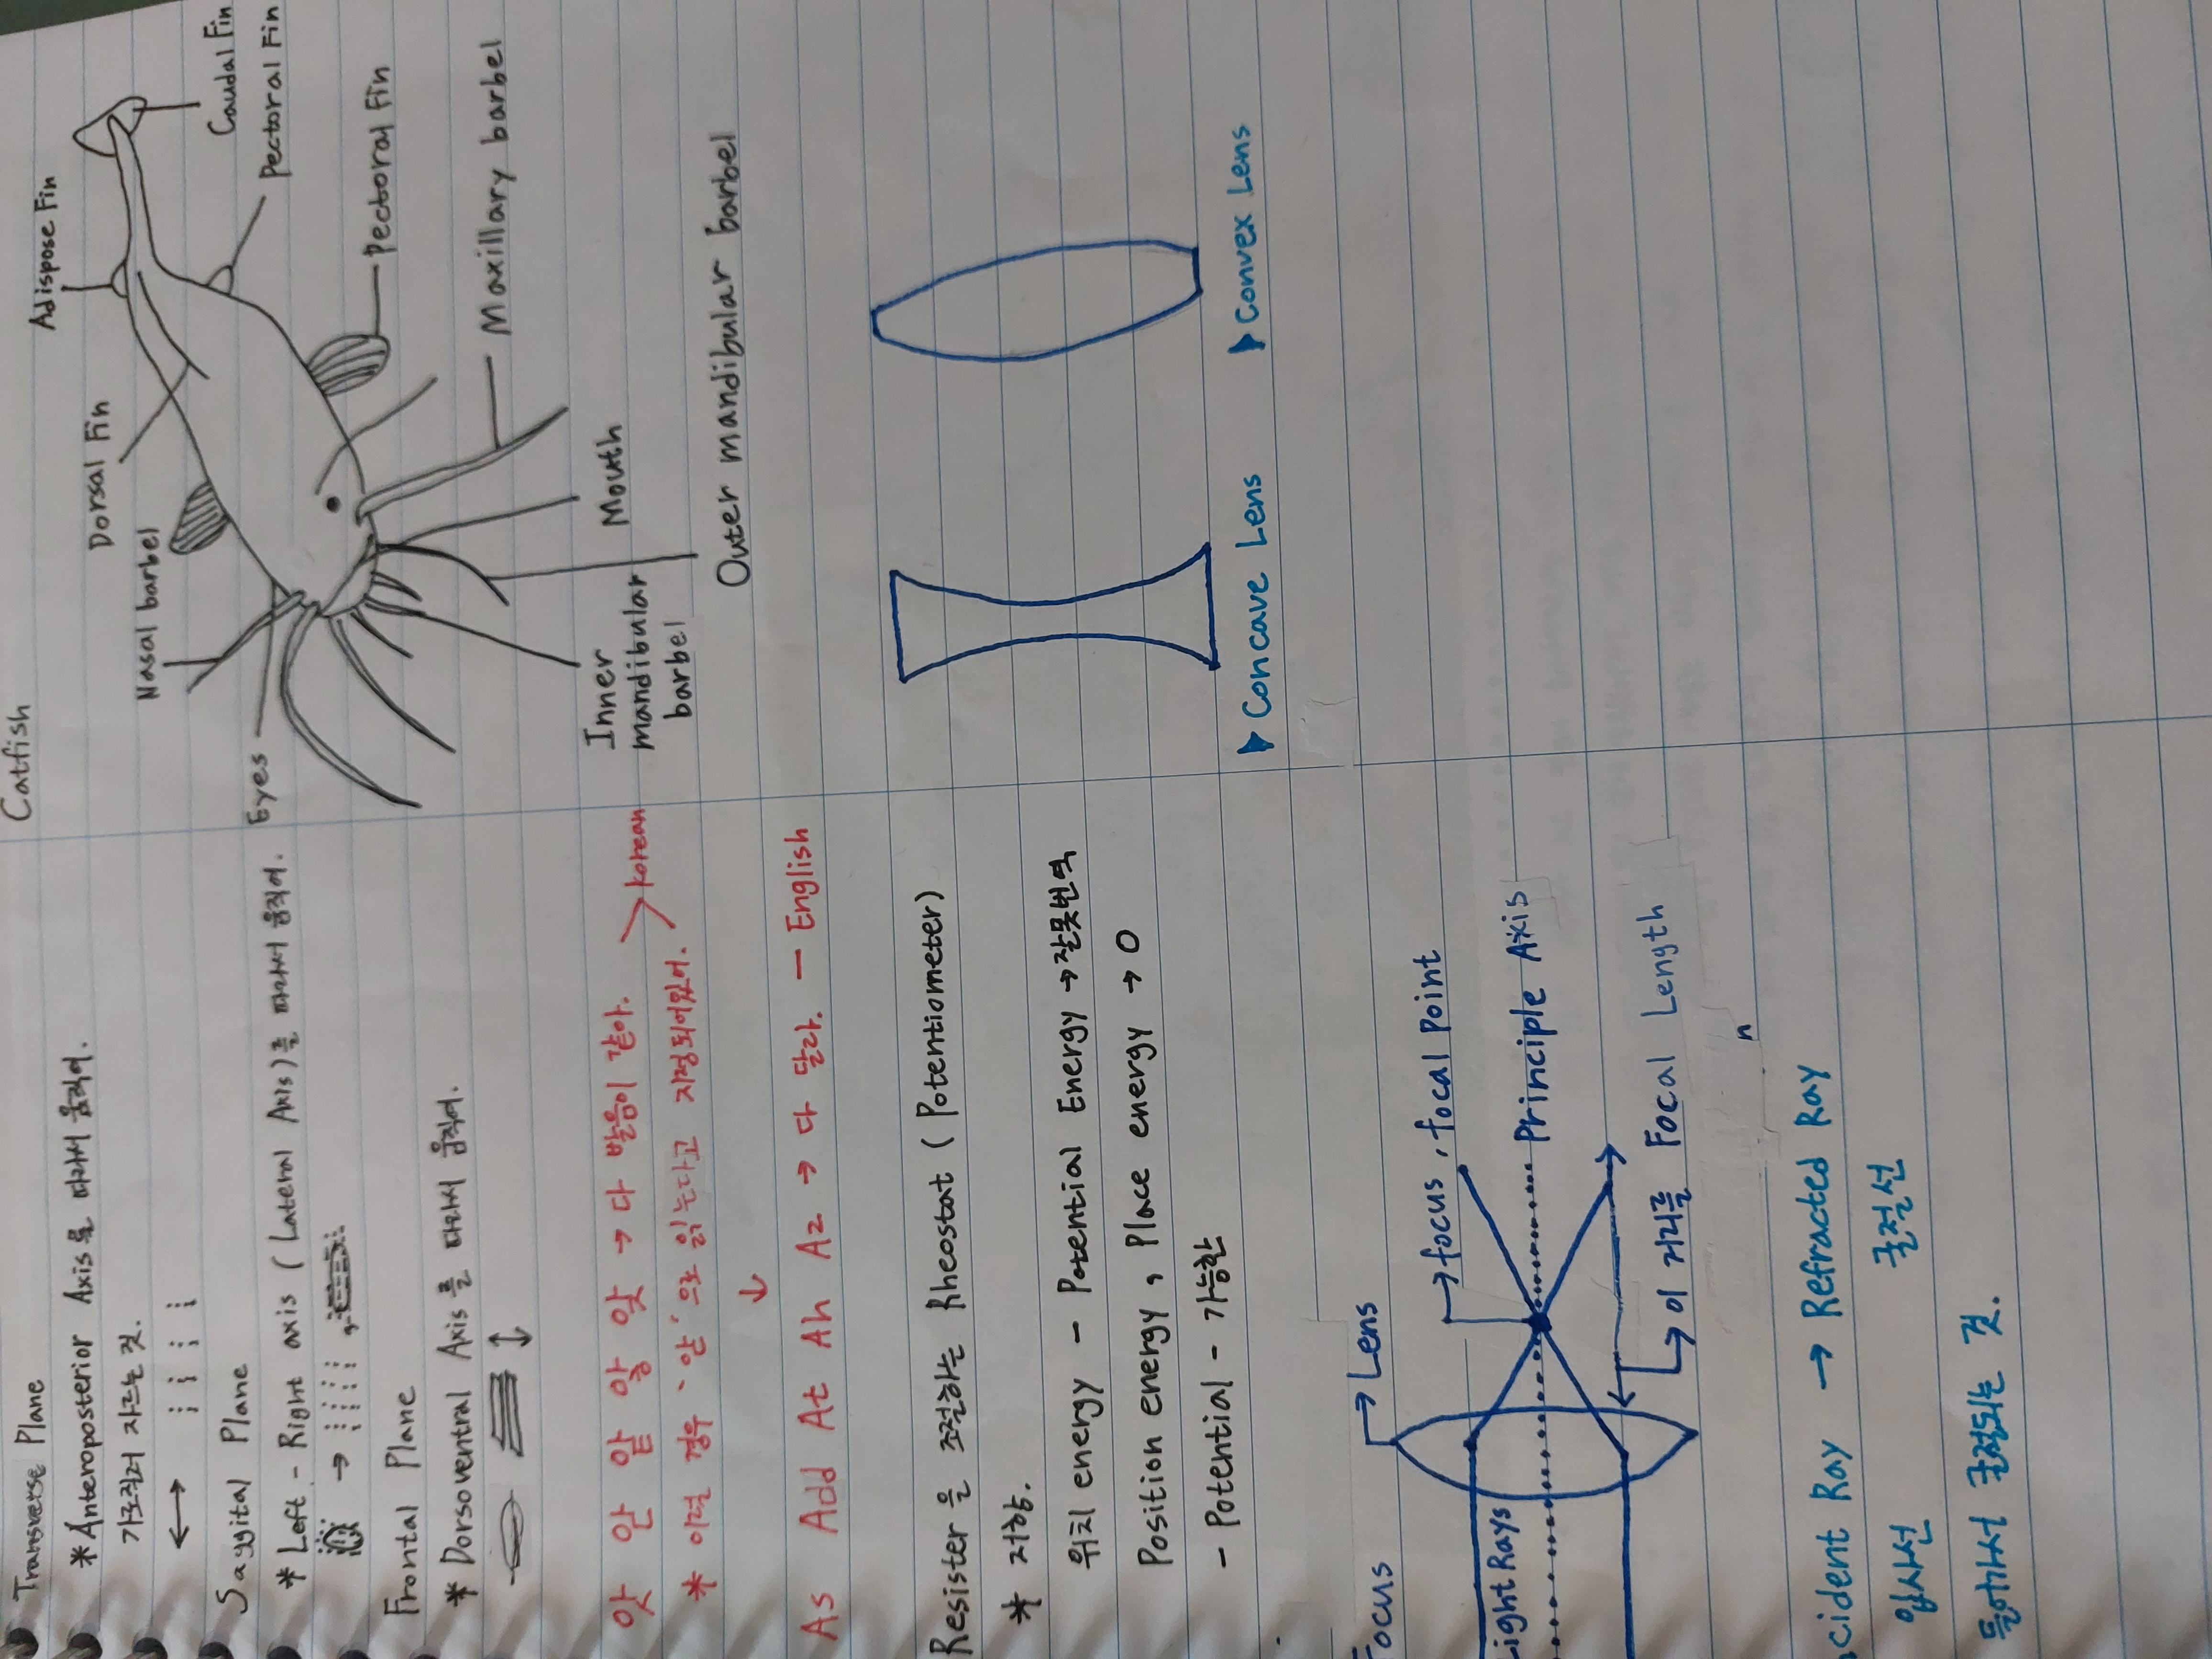 Transverse Plane
* Anteroposterior Axis를 따라서 움직여.
가로질러 자르는 것.
Sagyital Plane
* Left - Right axis (Lateral Axis)를 따라서 움직여.
Frontal Plane
* Dorsoventral Axis를 따라서 움직여.
Catfish
Adispose Fin
Caudal Fin
Pectoral Fin
Dorsal Fin
Pectoral Fin
Nasal barbel
Maxillary barbel
Eyes
Mouth
Inner
mandibular
barbel
Outer mandibular barbel
앗 안 앋 앟 앚 → 다 발음이 같아.
* 이럴 경우 '안'으로 읽는다고 지정되어있어.
Korean
As Add At Ah Az → 다 달라. - English
Resister을 조절하는 Rheostat (Potentiometer)
* 저항.
위치 energy - Potential Energy → 잘못번역
Position energy, Place energy → O
- Potential - 가능한
▶ Concave Lens
▶ Convex Lens
Focus
Lens
focus, focal point
ight Rays
Principle Axis
이 거리를 Focal Length
n
cident Ray → Refracted Ray
입사선
굴절선
들어가서 굴절되는 것.